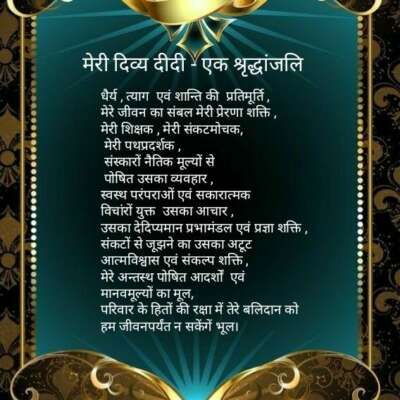 मेरी दिव्य दीदी - एक श्रृद्धांजलि
धैर्य , त्याग एवं शान्ति की प्रतिमूर्ति ,
मेरे जीवन का संबल मेरी प्रेरणा शक्ति ,
मेरी शिक्षक , मेरी संकटमोचक,
मेरी पथप्रदर्शक ,
संस्कारों नैतिक मूल्यों से
पोषित उसका व्यवहार ,
स्वस्थ परंपराओं एवं सकारात्मक
विचांरों युक्त उसका आचार ,
उसका देदिप्यमान प्रभामंडल एवं प्रज्ञा शक्ति ,
संकटों से जूझने का उसका अटूट
आत्मविश्वास एवं संकल्प शक्ति ,
मेरे अन्तस्थ पोषित आदर्शों एवं
मानवमूल्यों का मूल,
परिवार के हितों की रक्षा में तेरे बलिदान को
हम जीवनपर्यंत न सकेंगें भूल।